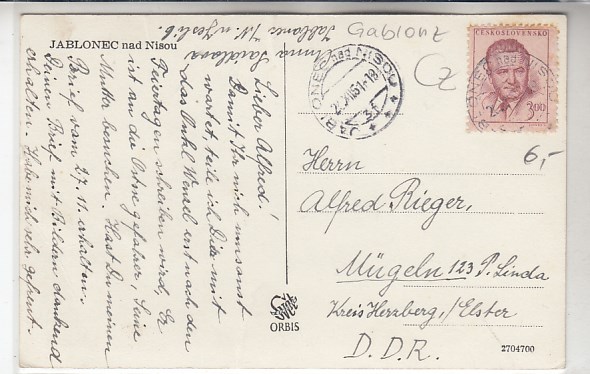 JABLONEC nad Nisou
Anna
Jablonec
Gablonz
CZ
Lieber Alfred!
Damit Ihr nich umsonst
wartet, teile ich Dir mit
das Onkel Wenzel erst nach den
Feiertagen schreiben wird, Er
ist an die Ostsee gefahren, seine
Mutter besuchen. Hast Du meinen
Brief vom 27.11. erhalten.
Deinen Brief mit Bildern dankend
erhalten. Habe mich sehr gefreut.
JABLONEC NAD NISOU
ČESKOSLOVENSKO
3,00
6,-
Herrn
Alfred Rieger,
Mügeln 123 P. Linda
Kreis Herzberg,/Elster
D.D.R.
ORBIS
2704700